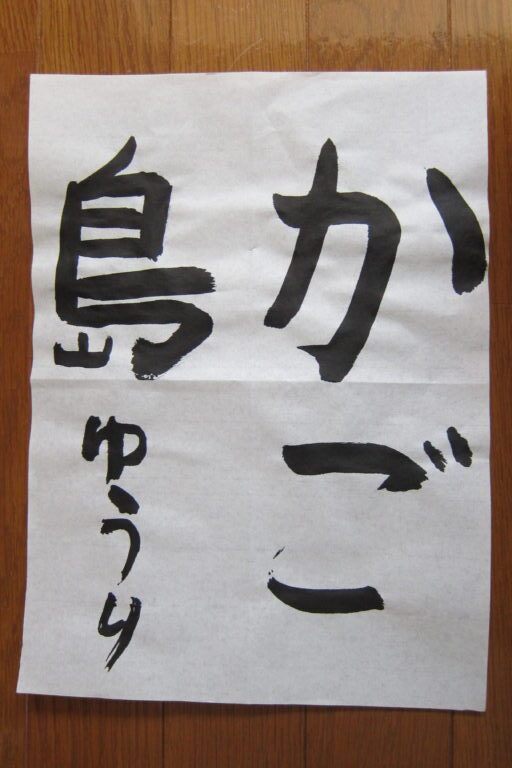 かご
島
ゆうり